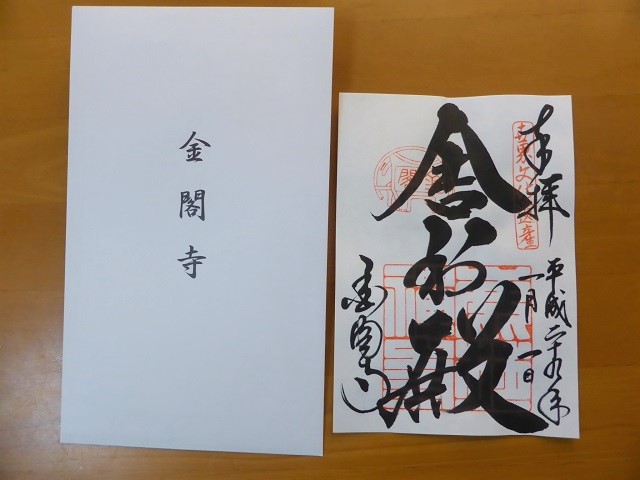 金閣寺
奉拝
平成二十九年
一月一日
舎利殿
金閣寺
世界文化遺産